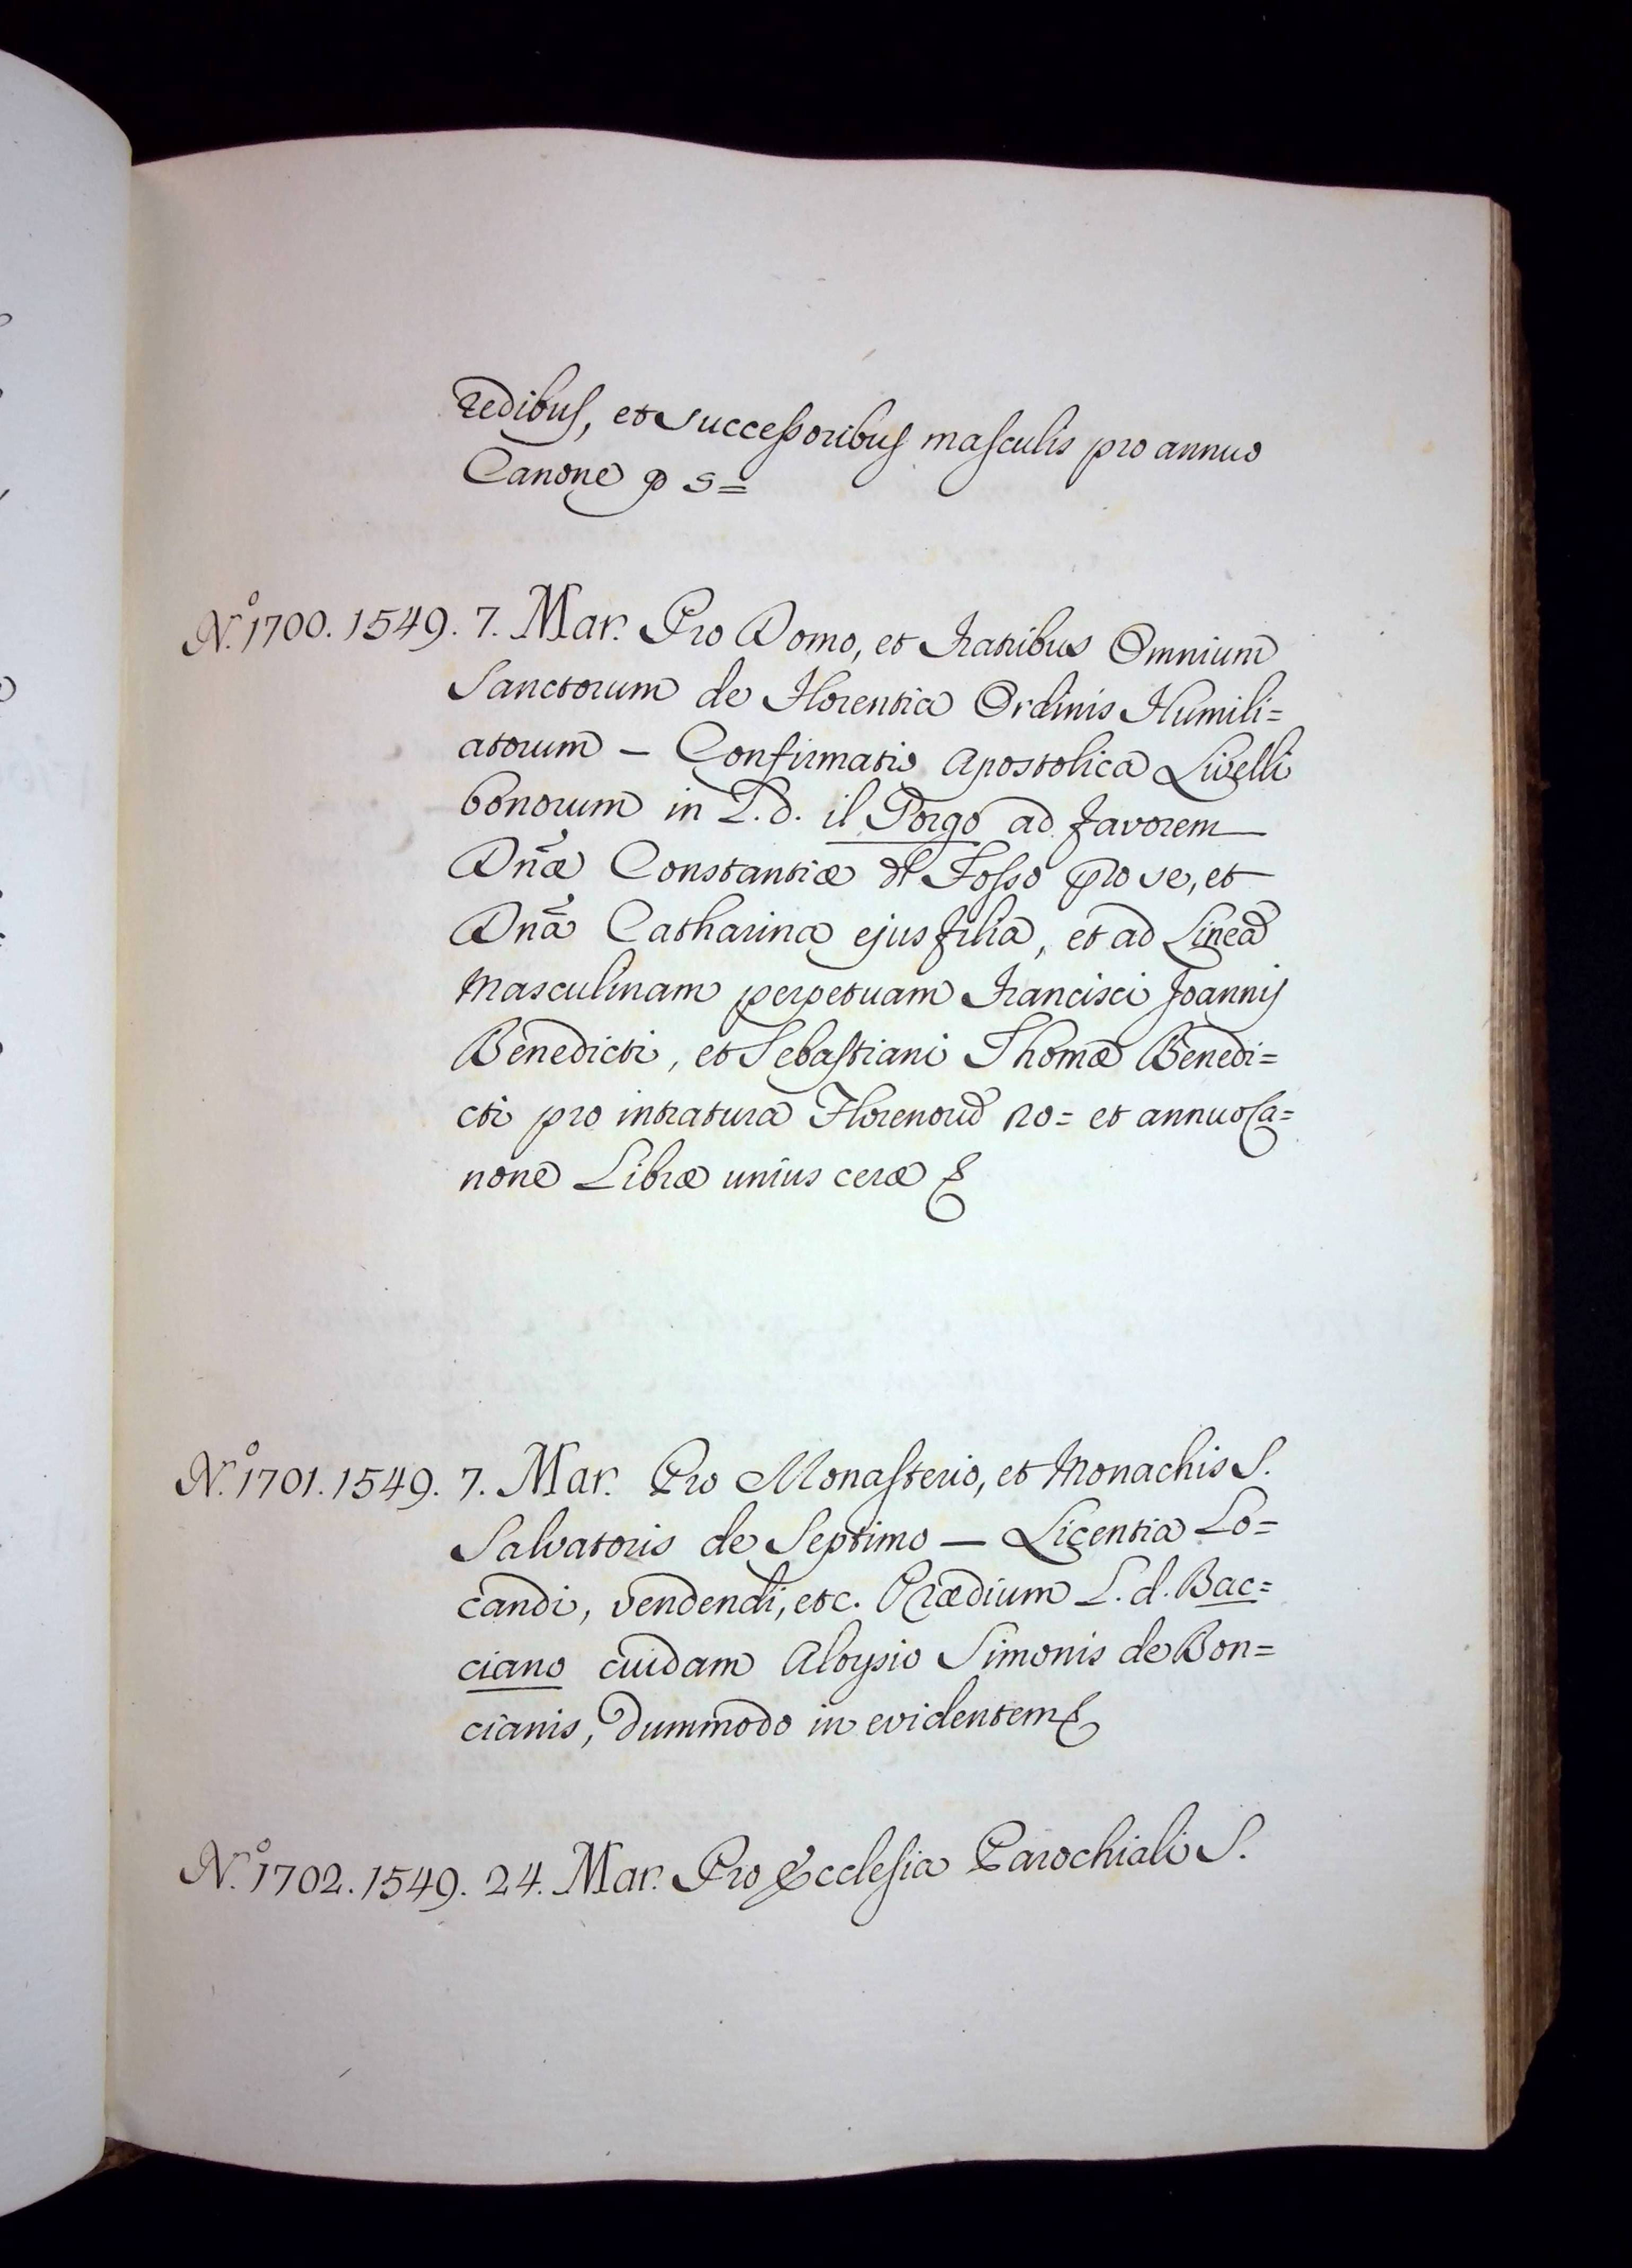 redibus, et successoribus masculis pro annuo
Canone
N.º 1700. 1549. 7. Mar. Pro Domo, et Fratribus Omnium
Sanctorum de Florentia Ordinis Humili=
atorum — Confirmatio Apostolica Livelli
bonorum in L.d. il Porgo ad favorem
Dñæ Constantiæ del Fosso pro se, et
Dña Catharina ejus filia, et ad Lineā
Masculinam perpetuam Francisci Joannis
Benedicti, et Sebastiani Thomæ Benedi=
cti pro intratura Florenorū et annuo Ca=
none Libræ unius ceræ &
N.º 1701. 1549. 7. Mar. Pro Monasterio, et Monachis S.
Salvatoris de Septimo — Licentia Lo=
candi, vendendi, etc. Prædium L.d. Bac=
ciano cuidam Aloysio Simonis de Bon=
cianis, dummodo in evidentem &
N.º 1702. 1549. 24. Mar. Pro Ecclesia Parochiali S.